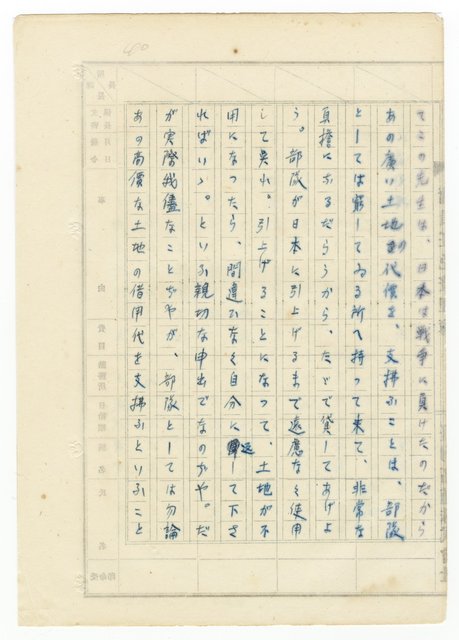 てこの先生は、日本は戦争に負けたのだから
あの廣い土地の代價を、支拂ふことは、部隊
としては窮してゐる所へ持つて来て、非常な
負擔になるだらうから、たゞで貸してあげよ
う。部隊が日本に引上げるまで遠慮なく使用
して呉れ。引上げることになつて、土地が不
用になつたら、間違ひなく自分に返して下さ
ればいゝ。といふ親切な申出でなのぢや。だ
が実際我儘なことぢやが、部隊としては勿論
あの高價な土地の借用代を支拂ふといふこと